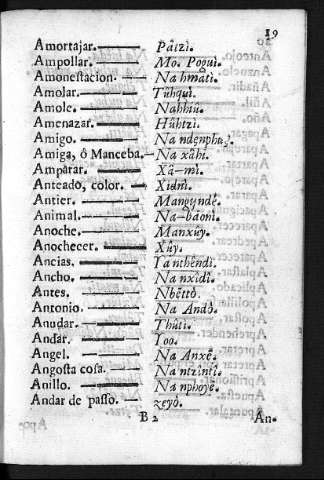 19
Amortajar. Pâtzi.
Ampollar. Mo. Poguì.
Amonestacion. Na hmâtî.
Amolar. Tŭhquì.
Amole. Nahhiû.
Amenazar. Hûhtzì.
Amigo. Na
Amiga, ô Manceba. Na xâhi.
Amparar. Xâ-mì.
Anteado, color. Xidnì.
Antier. Mangyndê.
Animal. Na-bâoni.
Anoche. Manxûy.
Anochecer. Xûy.
Ancias. Ta nthêndi.
Ancho. Na nxidì.
Antes. Nbêttò.
Antonio. Na Andò.
Anudar. Thûti.
Andar. Too.
Angel. Na Anxê.
Angosta cosa. Na ntzintî.
Anillo. Na nphoyê.
Andar de passo. zeyò.
B 2 An.